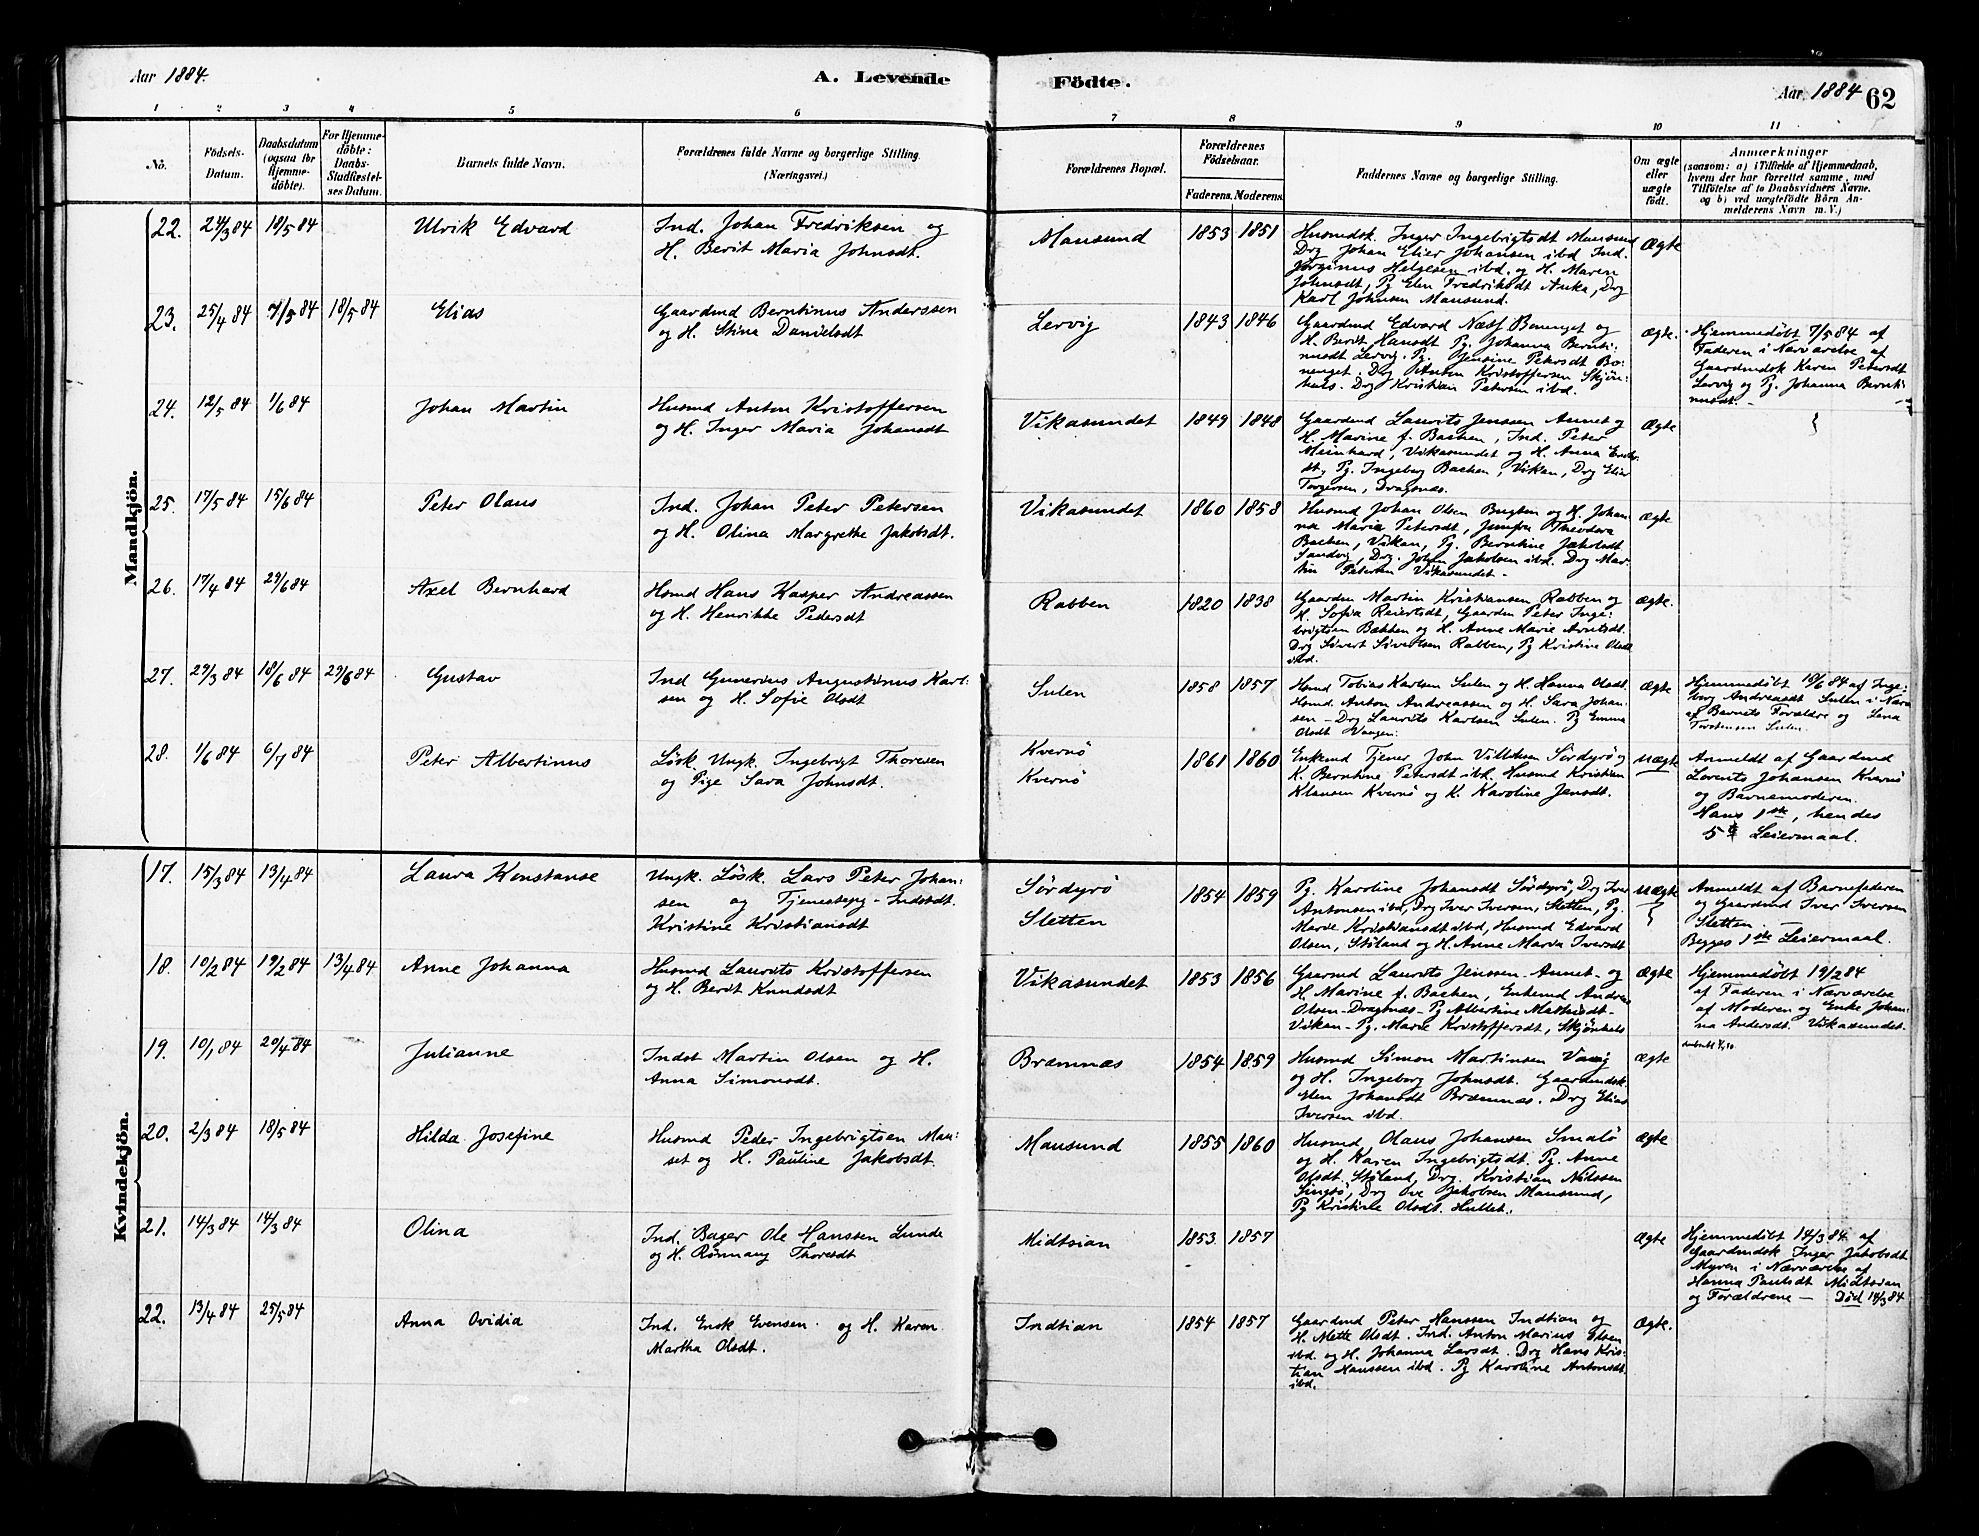 Aar 1884.
A. Levende
Födte.
Aar 1884
62
1 2 3 4 5 6 7 8 9 10 11
No.
Födsels-Datum.
Daabsdatum (ogsaa for Hjemme-döbte).
For Hjemme-döbte: Daabs-Stadfæstel-ses Datum.
Barnets fulde Navn.
Forældrenes fulde Navne og borgerlige Stilling.
(Næringsvei.)
Forældrenes Bopæl.
Forældrenes Födselsaar.
Faderens. Moderens.
Faddernes Navne og borgerlige Stilling.
Om ægte eller uægte födt.
Anmærkninger
(saasom: a) i Tilfælde af Hjemmedaab,
hvem der har forrettet samme, med
Tilföielse af to Daabsvidners Navne.
og b) ved uægtefödte Börn An-
melderens Navn m. V.)
Mandkjön.
22. 24/3 84 18/5 84 Ulrik Edvard
Ind. Johan Fredriksen og
H. Berit Maria Johnsdt.
Mausund 1853 1851
Husmdsk. Inger Ingebrigtsdt Mausund
Drg Johan Elier Johansen ibd Ind.
Jörginus Helgesen ibd. og H. Maren
Johnsdt, Pg Elen Fredriksdt Auka, Drg
Karl Johnsen Mausund.
Ægte
23. 25/4 84 7/5 84 18/5 84 Elias
Gaardmd Berntinus Anderssen
og H. Stina Danielsdt
Lervig 1843 1846
Gaardmd Edvard Næss Bonenget og
H. Berit Hansdt Pg. Johanna Bernti-
nusdt Lervig. Pg. Jensine Petersdt Bo-
nenget. Drg Anton Kristoffersen Skjön-
hals. Drg Kristian Petersen ibd.
Ægte.
Hjemmedøbt 7/5 84 af
Faderen i Nærværelse af
Gaardmdsk Karen Petersdt
Lervig og Pg. Johanna Bernti-
nusdt.
24. 12/5 84 1/6 84 Johan Martin
Husmd Anton Kristoffersen
og H. Inger Maria Johansdt
Vikasundet 1849 1848
Gaardmd Laurits Jenssen Annet og
H. Marine f. Bachen, Ind. Peter
Meinhard, Vikasundet og H. Anna
Pg. Ingeborg Bachen, Vikan, Drg Elier
Torgersen, Dragsnæs.
Ægte
25. 17/5 84 15/6 84 Peter Olaus
Ind. Johan Peter Petersen
og H. Olina Margrethe Jakobsdt.
Vikasundet 1860 1858
Husmd Johan Olsen Bugten og H. Johan-
na Maria Petersdt, Jomfru Theodora
Bachen, Vikan, Pg. Berntine Jakobsdt
Sandvig, Drg. Johan Jakobsen ibd. Drg Mar-
tin Petersen Vikasundet.
Ægte
26. 17/4 84 29/6 84 Axel Bernhard
Hsmd Hans Kasper Andreassen
og H. Henrikke Pedersdt
Rabben 1820 1838
Gaardm Martin Kristiansen Rabben og
H. Sofia Reiertsdt, Gaardm Peter Inge-
brigtsen Bækken og H. Anne Marie Arntsdt.
Drg Sivert Sivertsen Rabben, Pg Kristine Olsdt
ibd.
Ægte.
27. 29/3 84 18/6 84 29/6 84 Gustav
Ind Gunerius Augustinus Karl-
sen og H. Sofie Olsdt
Sulen 1858 1857
Hsmd Tobias Karlsen Sulen og H. Hanna Olsdt.
Hsmd. Anton Andreassen og H. Sara Johan-
sen - Drg Laurits Karlsen Sulen. Pg Emma
Olsdt Vaagen.
Ægte
Hjemmedøbt 18/6 84 af Inge-
borg Andreasdt Sulen i Nærv.
af Barnets Forældre og Lena
Torstensen Sulen.
28. 1/6 84 6/7 84 Peter Albertinus
Lösk. Ungk. Ingebrigt Thoresen
og Pige Sara Johnsdt.
Kvernö
Kvernö
1861 1860
Enkemd Tjener John Villiksen Sördyrö og
K. Berntine Petersdt ibd. Husmd Kristian
Klausen Kvernö og K. Karoline Jensdt.
Uægte
Anmeldt af Gaardmd
Lorents Johansen Kvernö
og Barnemoderen.
Hans 1ste, hendes
5te Leiermaal.
Kvindekjön.
17. 15/3 84 13/4 84 Laura Konstanse
Ungk. Lösk. Lars Peter Johan-
sen og Tjenestepg - Indstdt.
Kristine Kristiansdt
Sördyrö
Sletten
1854 1859
Pg. Karoline Johansdt Sördyrö, Drg Iver
Antonsen ibd, Drg Iver Iversen, Sletten, Pg.
Marie Kristiansdt ibd, Husmd Edvard
Olsen, Stiland og H. Anne Maria Iversdt
Uægte
Anmeldt af Barnefaderen
og Gaardmd Iver Iversen
Sletten.
Begges 1ste Leiermaal.
18. 10/2 84 19/2 84 13/4 84 Anne Johanna
Husmd Laurits Kristoffersen
og H. Berit Knudsdt
Vikasundet 1853 1856
Gaarmd Laurits Jenssen Annet og
H. Marine f. Bachen, Enkemd Andreas
Olsen - Dragsnæs - Pg Albertine Mathisdt
Vikan - Pg. Marie Kristoffersdt, Skjönhals
Ægte
Hjemmedøbt 19/2 84
af Faderen i Nærværelse
af Moderen og Enke Johan-
na Andersdt. Vikasundet.
19. 10/1 84 20/4 84 Julianne
Indst Martin Olsen og H.
Anna Simonsdt.
Bramnæs 1854 1859
Husmd Simon Martinsen Vaag
og H. Ingeborg Johnsdt. Gaardmdsk.
Elen Johansdt Bramnæs. Drg Elias
Iversen ibd.
Ægte
20. 2/3 84 18/5 84 Hilda Josefine
Husmd Peder Ingebrigtsen Mau-
set og H. Pauline Jakobsdt.
Mausund 1855 1860
Husmd Olaus Johansen Smalö
og H. Karen Ingebrigtsdt. Pg. Anne
Olsdt Stiland, Drg. Kristian Nilssen
Singsö, Drg Ove Jakobsen Mausund,
Pg Kristine Olsdt. Hullet.
Ægte
21. 14/3 84 14/3 84 Olina
Ind. Bager Ole Hanssen Lunde
og H. Rönnaug Thoresdt
Midtsian 1853. 1857
Ægte
Hjemmedøbt 14/3 84. af
Gaardmdsk Inger Jakobsdt
Myren i Nærværelse af
Hanna Paulsdt Midtsian
og Forældrene - Död 14/3 84
22. 13/4 84 25/5 84 Anna Ovidia
Ind. Enok Evensen og H. Karen
Martha Olsdt.
Indtian 1854 1857
Gaardmd Peter Hanssen Indtian og
H. Mette Olsdt. Ind. Anton Marius Olsen
ibd. og H. Johanna Larsdt. Drg Hans Kris-
tian Hanssen ibd. Pg Karoline Antonsdt
ibd.
Ægte.